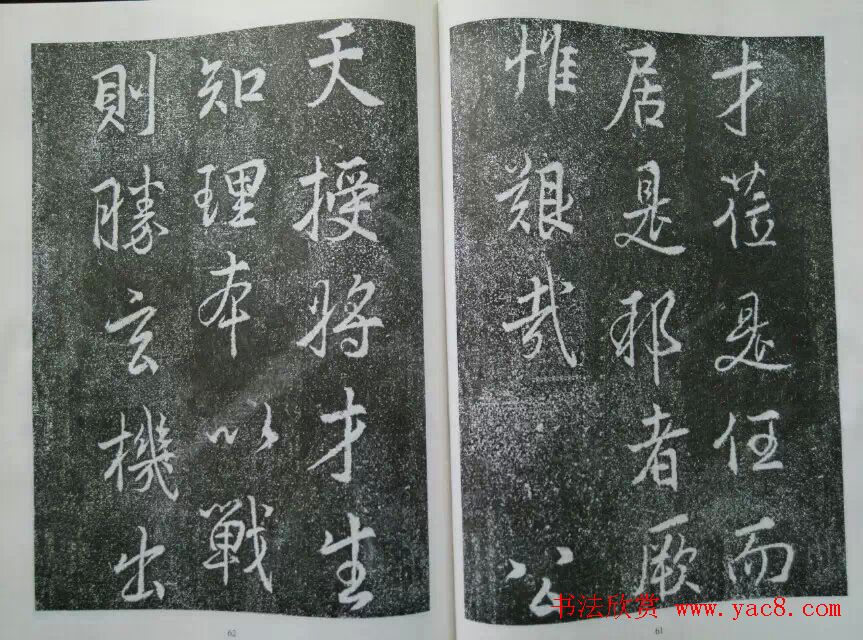 才莅是任而
居是邦者厥
惟艱哉　公
天授將才生
知理本以戰
則勝玄機出
62
61
书法欣赏 www.yac8.com